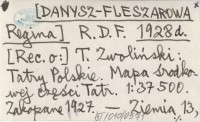 [DANYSZ-FLESZAROWA
Regina] R.D.F. 1928d.
[Rec. o:] T. Zwoliński:
Tatry Polskie. Mapa środko-
wej części Tatr. 1:37500.
Zakopane 1927. — Ziemia 13,